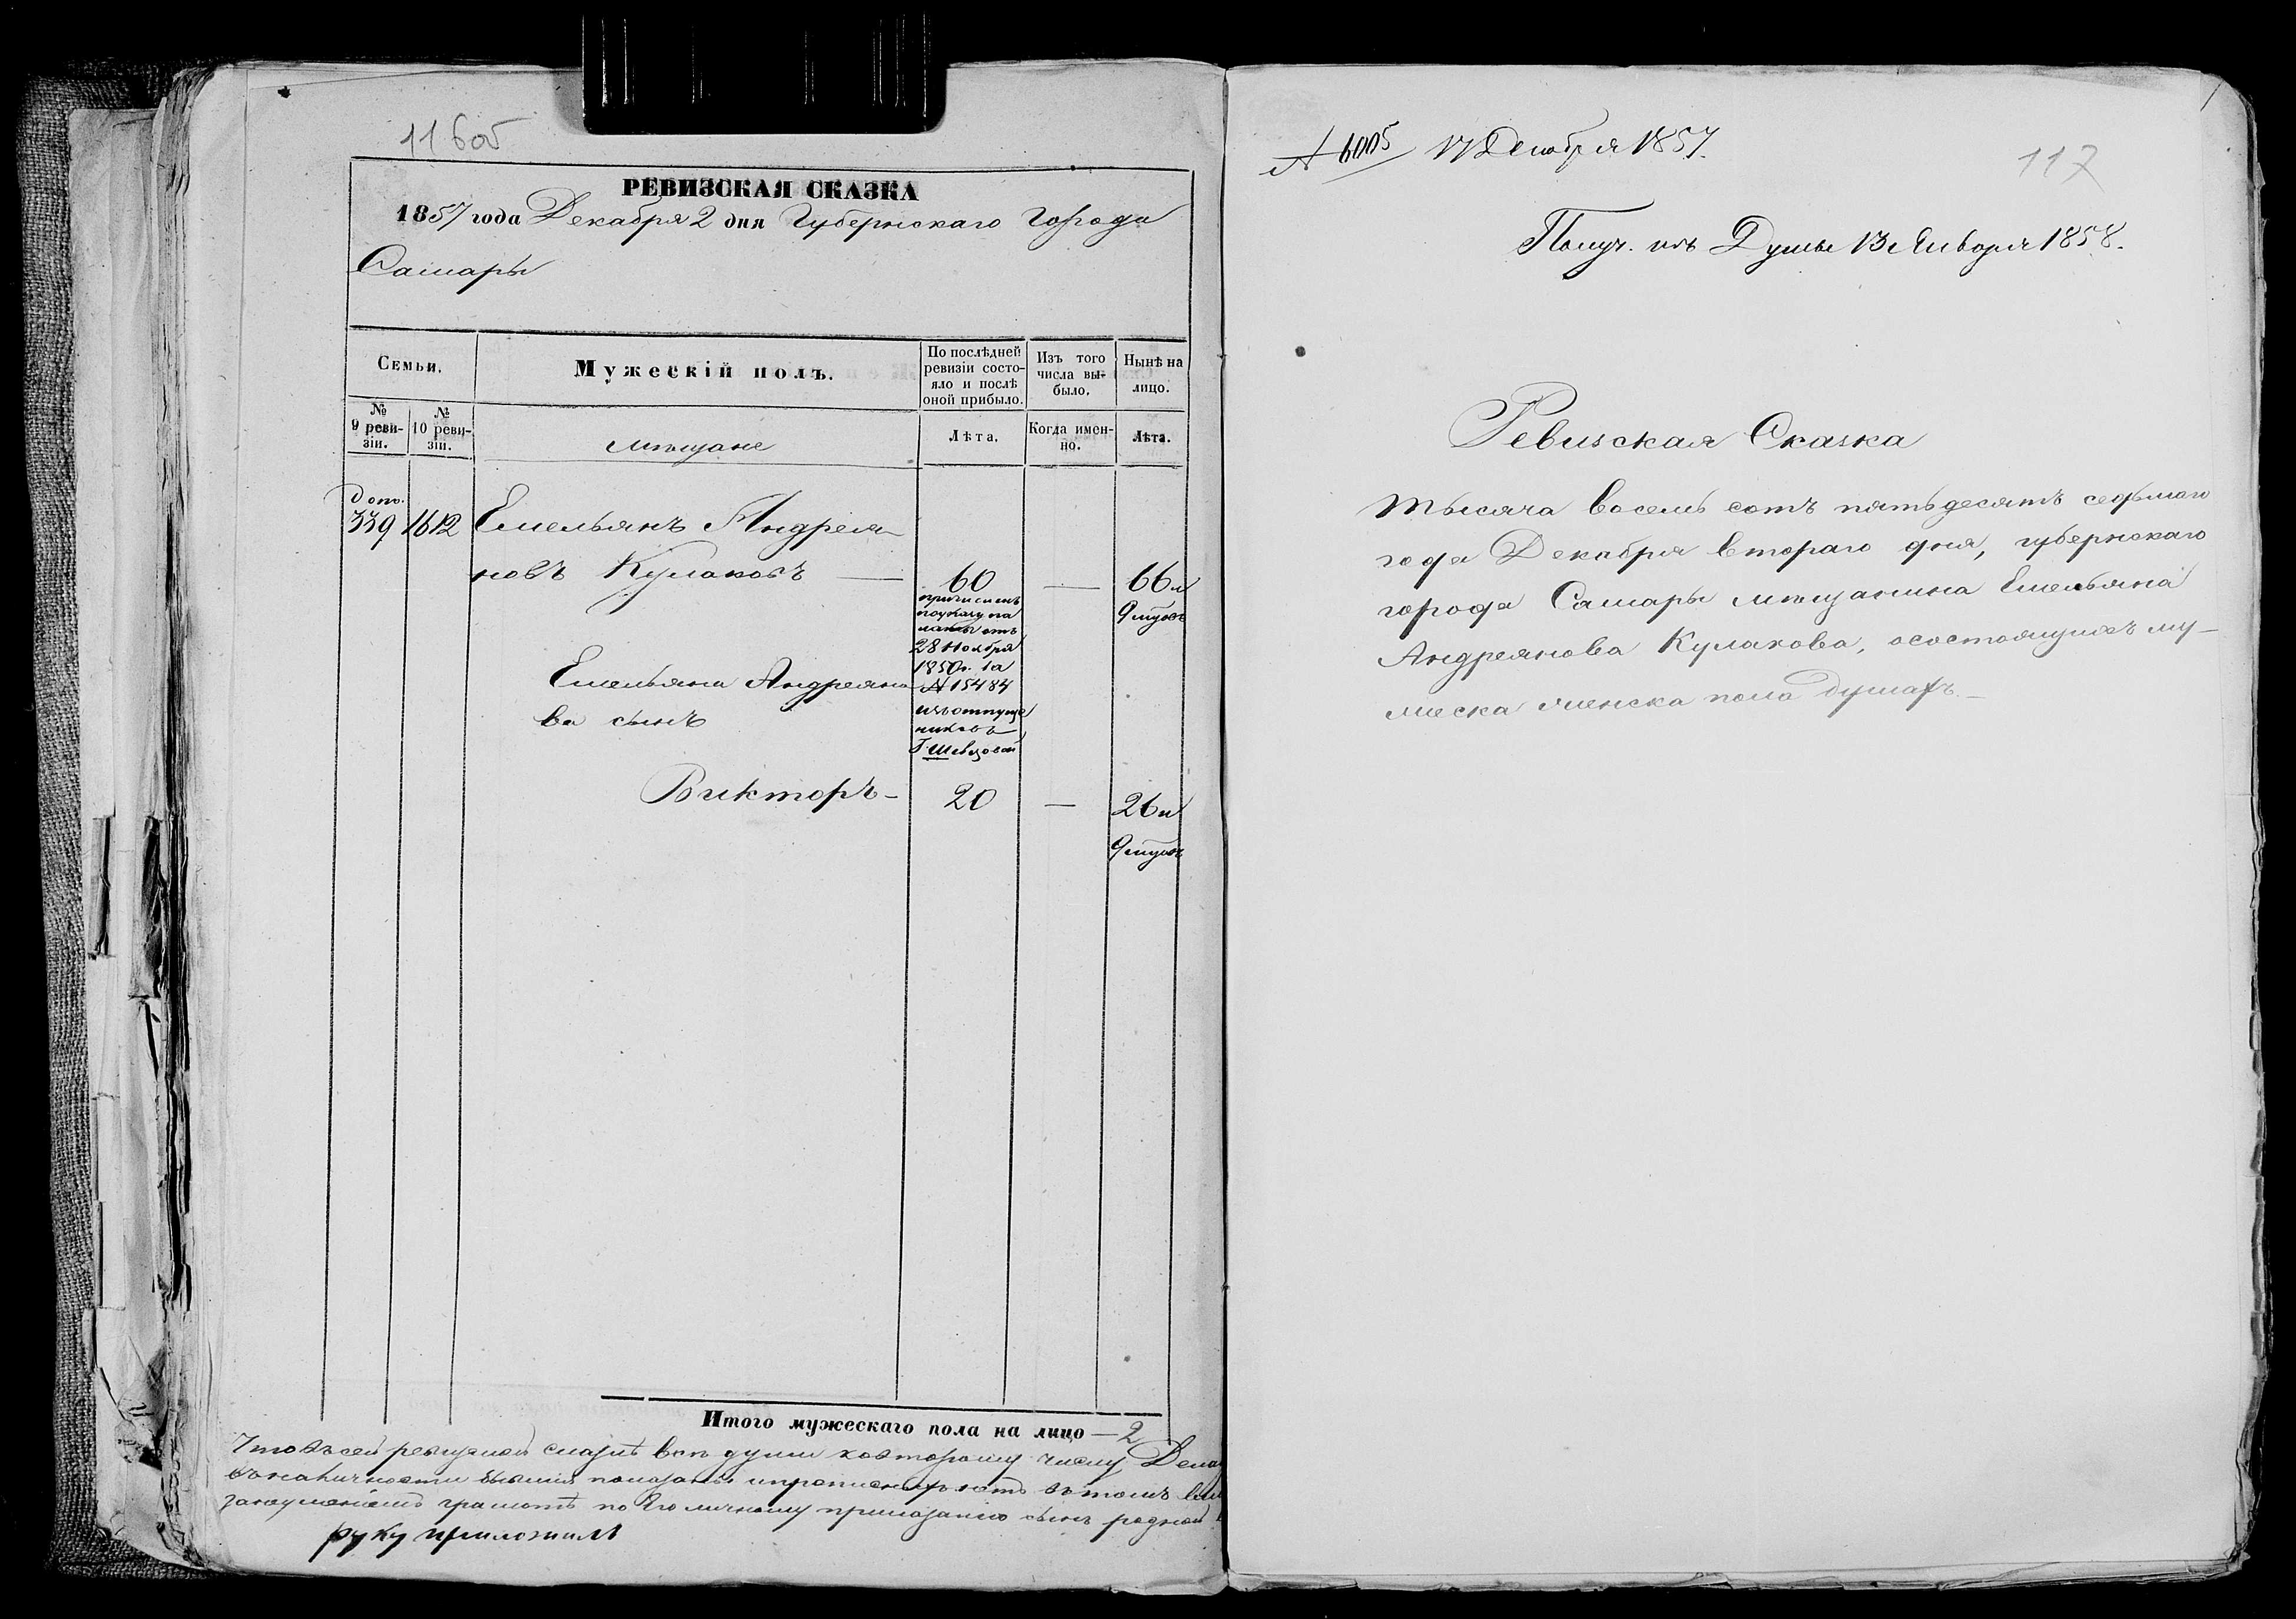 116об
РЕВИЗСКАЯ СКАЗКА
1857 года Декабря 2 дня Губернскаго Города
Самары
Семьи.
Мужескій полъ.
По послѣдней ревизіи состо-
яло и послѣ оной прибыло.
Изъ того числа вы-
было.
Нынѣ на лицо.
№ 9 реви-
зіи.
№ 10 реви-
зіи.
мѣщане
Лѣта.
Когда имен-
но.
Лѣта.
Допо.
339 1612 Емельянъ Андрея-
новъ Кулаковъ — 60 — 66 и
9 м҃цовъ
причисленъ
по указу па
латы отъ
28 Ноября
1850 г. за
№ 15484
изъ отпуще
никовъ
Г. Шевцовой
Емельяна Андреяно
ва сынъ
Викторъ - 20 — 26 и
9 м҃цовъ
Итого мужескаго пола на лицо — 2
Что въ сей ревизской сказкѣ всѣ души ко второму числу Дека
въ наличности бывшія показаны и прописныхъ нѣтъ въ томъ
за неумѣніемъ грамотѣ по его личному приказанію сынъ родной
руку приложилъ
№ 6005 17 Декабря 1857.
117
Получ. изъ Думы 13 Января 1858.
Ревизская Сказка
тысяча восемь сотъ пятьдесятъ седьмаго
года Декабря втораго дня, губернскаго
города Самары мѣщанина Емельяна
Андреянова Кулакова, о состоящихъ му-
жеска женска пола душахъ.—